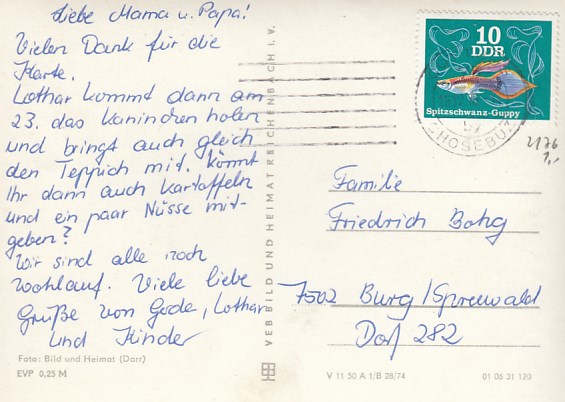 Liebe Mama u. Papa!
Vielen Dank für die
Karte.
Lothar kommt dann am
23. das Kaninchen holen
und bringt auch gleich
den Teppich mit. Könnt
Ihr dann auch Kartoffeln
und ein paar Nüsse mit-
geben?
Wir sind alle noch
wohlauf. Viele liebe
Grüße von Gode, Lothar
und Kinder
Foto: Bild und Heimat (Darr)
EVP 0,25 M
VEB BILD UND HEIMAT REICHENBACH I. V.
10
DDR
Spitzschwanz-Guppy
2176
1,-
Familie
Friedrich Bohg
7502 Burg/Spreewald
Dorf 282
V 11 50 A 1/B 28/74
01 06 31 120